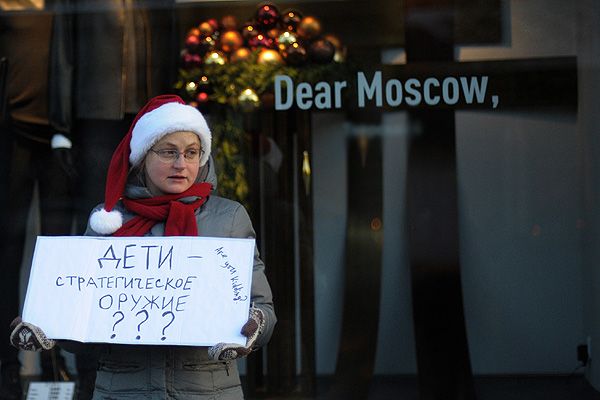 Dear Moscow,
ДЕТИ –
СТРАТЕГИЧЕСКОЕ
ОРУЖИЕ
???
Are you kidding?